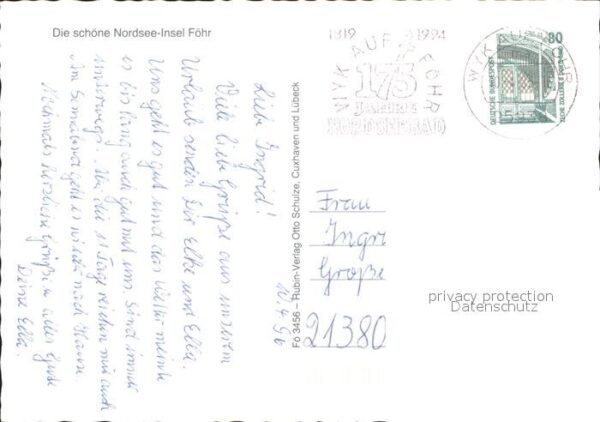 Die schöne Nordsee-Insel Föhr
1819 1994
WYK AUF FÖHR
175
JAHRE
NORDSEEBAD
WYK AUF FÖHR
80
DEUTSCHE BUNDESPOST
ZECHE ZOLLERN II
Liebe Ingrid!
Viele liebe Grüße aus unserem
Urlaub senden Dir Elke und Ella.
Uns geht es gut und das Wetter meinte
es bis lang auch gut mit uns. Sind immer
unterwegs. Die 11 Tage reichen mir auch
Am Samstag geht es wieder nach Hause.
Nochmals herzliche Grüße alles Gute
Deine Ella.
Fö 3456 – Rubin-Verlag Otto Schulze, Cuxhaven und Lübeck
Frau
Ingr
Große
21380
privacy protection
Datenschutz